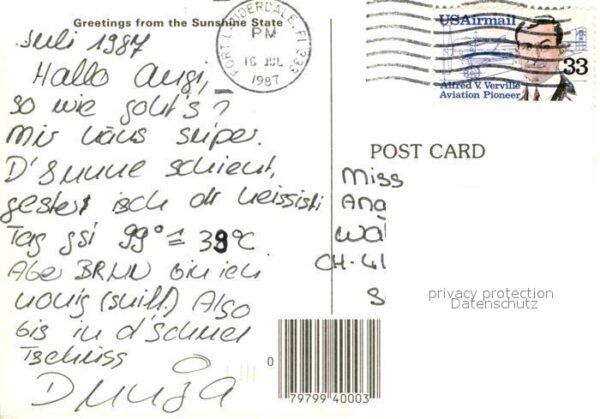 Greetings from the Sunshine State
Juli 1987
Hallo Angi,
so wie goht's?
Mir häns super.
D'Sunne schient,
gestert isch dr heissisti
Tag gsi 99° = 39°C.
Abe BRUN bin ich
nonig (snift.) Also
bis in d'Schuel
Tschüss
FORT LAUDERDALE, FL 333
PM
16 JUL
1987
USAirmail
33
Alfred V. Verville
Aviation Pioneer
POST CARD
Miss
Ana
Wal
CH-41
S
privacy protection
Datenschutz
0
79799 40003